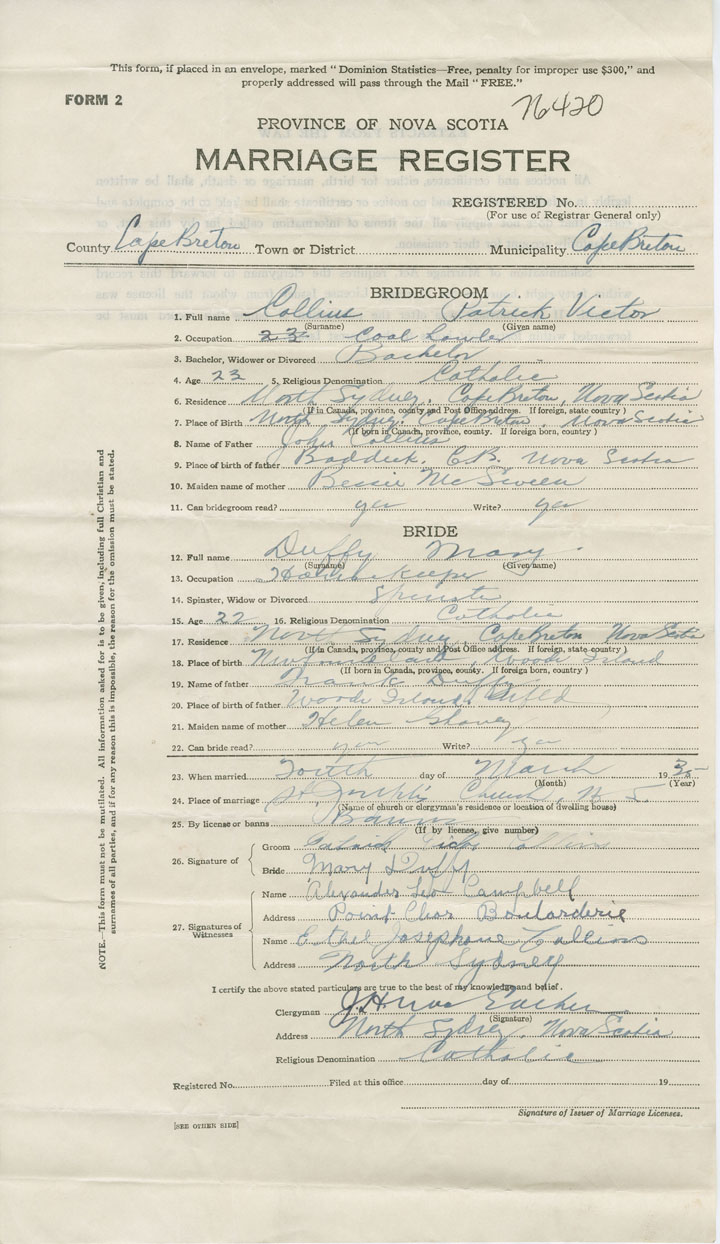 This form, if placed in an envelope, marked "Dominion Statistics—Free, penalty for improper use $300," and
properly addressed will pass through the Mail "FREE."
FORM 2
76420
PROVINCE OF NOVA SCOTIA
MARRIAGE REGISTER
REGISTERED No.
(For use of Registrar General only)
County Cape Breton Town or District Municipality Cape Breton
BRIDEGROOM
1. Full name Collins Patrick Victor
(Surname) (Given name)
2. Occupation 23 Coal
3. Bachelor, Widower or Divorced Bachelor
4. Age 23 5. Religious Denomination Catholic
6. Residence North Sydney, Cape Breton, Nova Scotia
(If in Canada, province, county and Post Office address. If foreign, state country)
7. Place of Birth North Sydney, Cape Breton, Nova Scotia
(If born in Canada, province, county. If foreign born, country)
8. Name of Father John Collins
9. Place of birth of father Baddeck, C.B. Nova Scotia
10. Maiden name of mother Bessie McSween
11. Can bridegroom read? yes Write? yes
BRIDE
12. Full name Duffy Mary
(Surname) (Given name)
13. Occupation Housekeeper
14. Spinster, Widow or Divorced Spinster
15. Age 22 16. Religious Denomination Catholic
17. Residence North Sydney, Cape Breton Nova Scotia
(If in Canada, province, county and Post Office address. If foreign, state country)
18. Place of birth Woods Island
(If born in Canada, province, county. If foreign born, country)
19. Name of father Frank Duffy
20. Place of birth of father Woods Island, Nfld
21. Maiden name of mother Helen
22. Can bride read? yes Write? yes
23. When married day of March 1935
(Month) (Year)
24. Place of marriage St Joseph's Church, N. S.
(Name of church or clergyman's residence or location of dwelling house)
25. By license or banns Banns
(If by license, give number)
26. Signature of
Groom Patrick Victor Collins
Bride Mary Duffy
27. Signatures of Witnesses
Name Alexander Leo Campbell
Address Point Clear Boularderie
Name Ethel Josephine Collins
Address North Sydney
I certify the above stated particulars are true to the best of my knowledge and belief.
Clergyman
(Signature)
Address North Sydney, Nova Scotia
Religious Denomination Catholic
Registered No. Filed at this office day of 19
Signature of Issuer of Marriage Licenses.
[SEE OTHER SIDE]
NOTE.—This form must not be mutilated. All information asked for is to be given, including full Christian and
surnames of all parties, and if for any reason this is impossible, the reason for the omission must be stated.